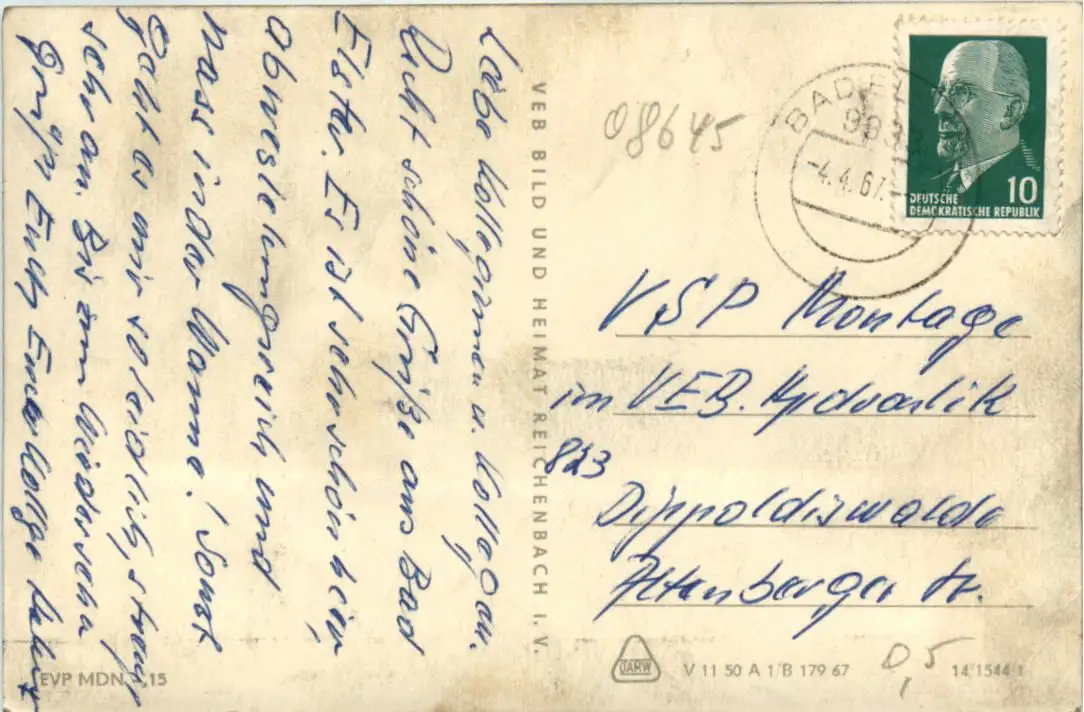 Liebe Kolleginnen u. Kollegen.
Recht schöne Grüße aus Bad
Elster. Es ist sehr schön hier,
abwechslungsreich und
nass in der Wanne! Sonst
geht es mir so leidlich, strengt
sehr an. Bis zum Wiedersehn
grüßt Euch Euer Kollege
VEB BILD UND HEIMAT REICHENBACH I. V.
EVP MDN 0,15
08645
BAD E
993
-4.4.67.
10
DEUTSCHE
DEMOKRATISCHE REPUBLIK
VSP Montage
im VEB. Hydraulik
823
Dippoldiswalde
Altenberger Str.
V 11 50 A 1/B 179 67
0,5
14/1544 1